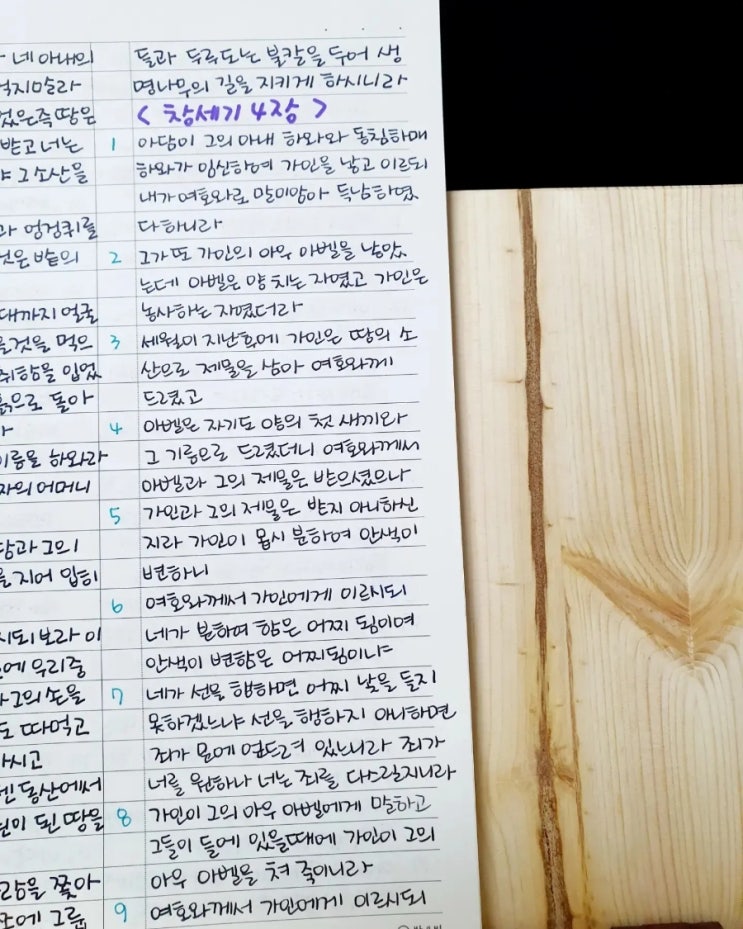 네 아내의
먹지말라
었은즉 땅은
받고 너는
그 소산을
과 엉겅퀴를
것은 밭의
대까지 얼굴
을것을 먹으
취함을 입었
흙으로 돌아
이름을 하와라
자의 어머니
담과 그의
을 지어 입히
시되 보라 이
에 우리중
그의 손을
도 따먹고
하시고
덴 동산에서
된이 된 땅을
람을 쫓아
쪽에 그룹
들과 두루도는 불칼을 두어 생
명나무의 길을 지키게 하시니라
< 창세기 4장 >
1 아담이 그의 아내 하와와 동침하매
하와가 임신하여 가인을 낳고 이르되
내가 여호와로 말미암아 득남하였
다 하니라
2 그가 또 가인의 아우 아벨을 낳았
는데 아벨은 양 치는 자였고 가인은
농사하는 자였더라
3 세월이 지난후에 가인은 땅의 소
산으로 제물을 삼아 여호와께
드렸고
4 아벨은 자기도 양의 첫 새끼와
그 기름으로 드렸더니 여호와께서
아벨과 그의 제물은 받으셨으나
5 가인과 그의 제물은 받지 아니하신
지라 가인이 몹시 분하여 안색이
변하니
6 여호와께서 가인에게 이르시되
네가 분하여 함은 어찌 됨이며
안색이 변함은 어찌됨이냐
7 네가 선을 행하면 어찌 낯을 들지
못하겠느냐 선을 행하지 아니하면
죄가 문에 엎드려 있느니라 죄가
너를 원하나 너는 죄를 다스릴지니라
8 가인이 그의 아우 아벨에게 말하고
그들이 들에 있을때에 가인이 그의
아우 아벨을 쳐 죽이니라
9 여호와께서 가인에게 이르시되